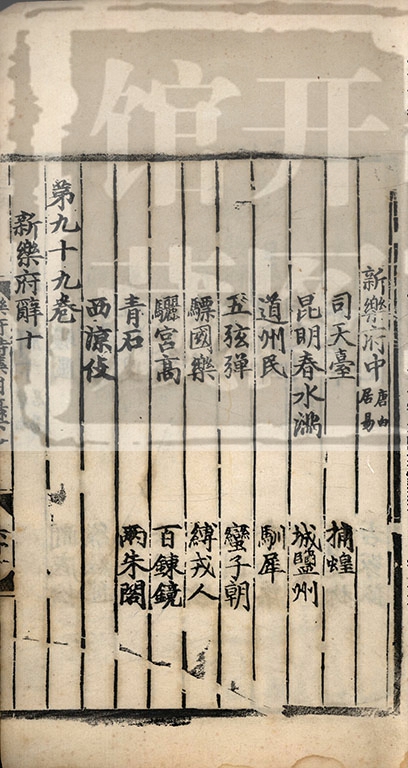 新樂府中 唐白居易
司天臺 捕蝗
昆明春水滿 城鹽州
道州民 馴犀
五弦彈 蠻子朝
驃國樂 縛戎人
驪宮高 百鍊鏡
青石 兩朱閣
西涼伎
第九十九卷
新樂府辭十